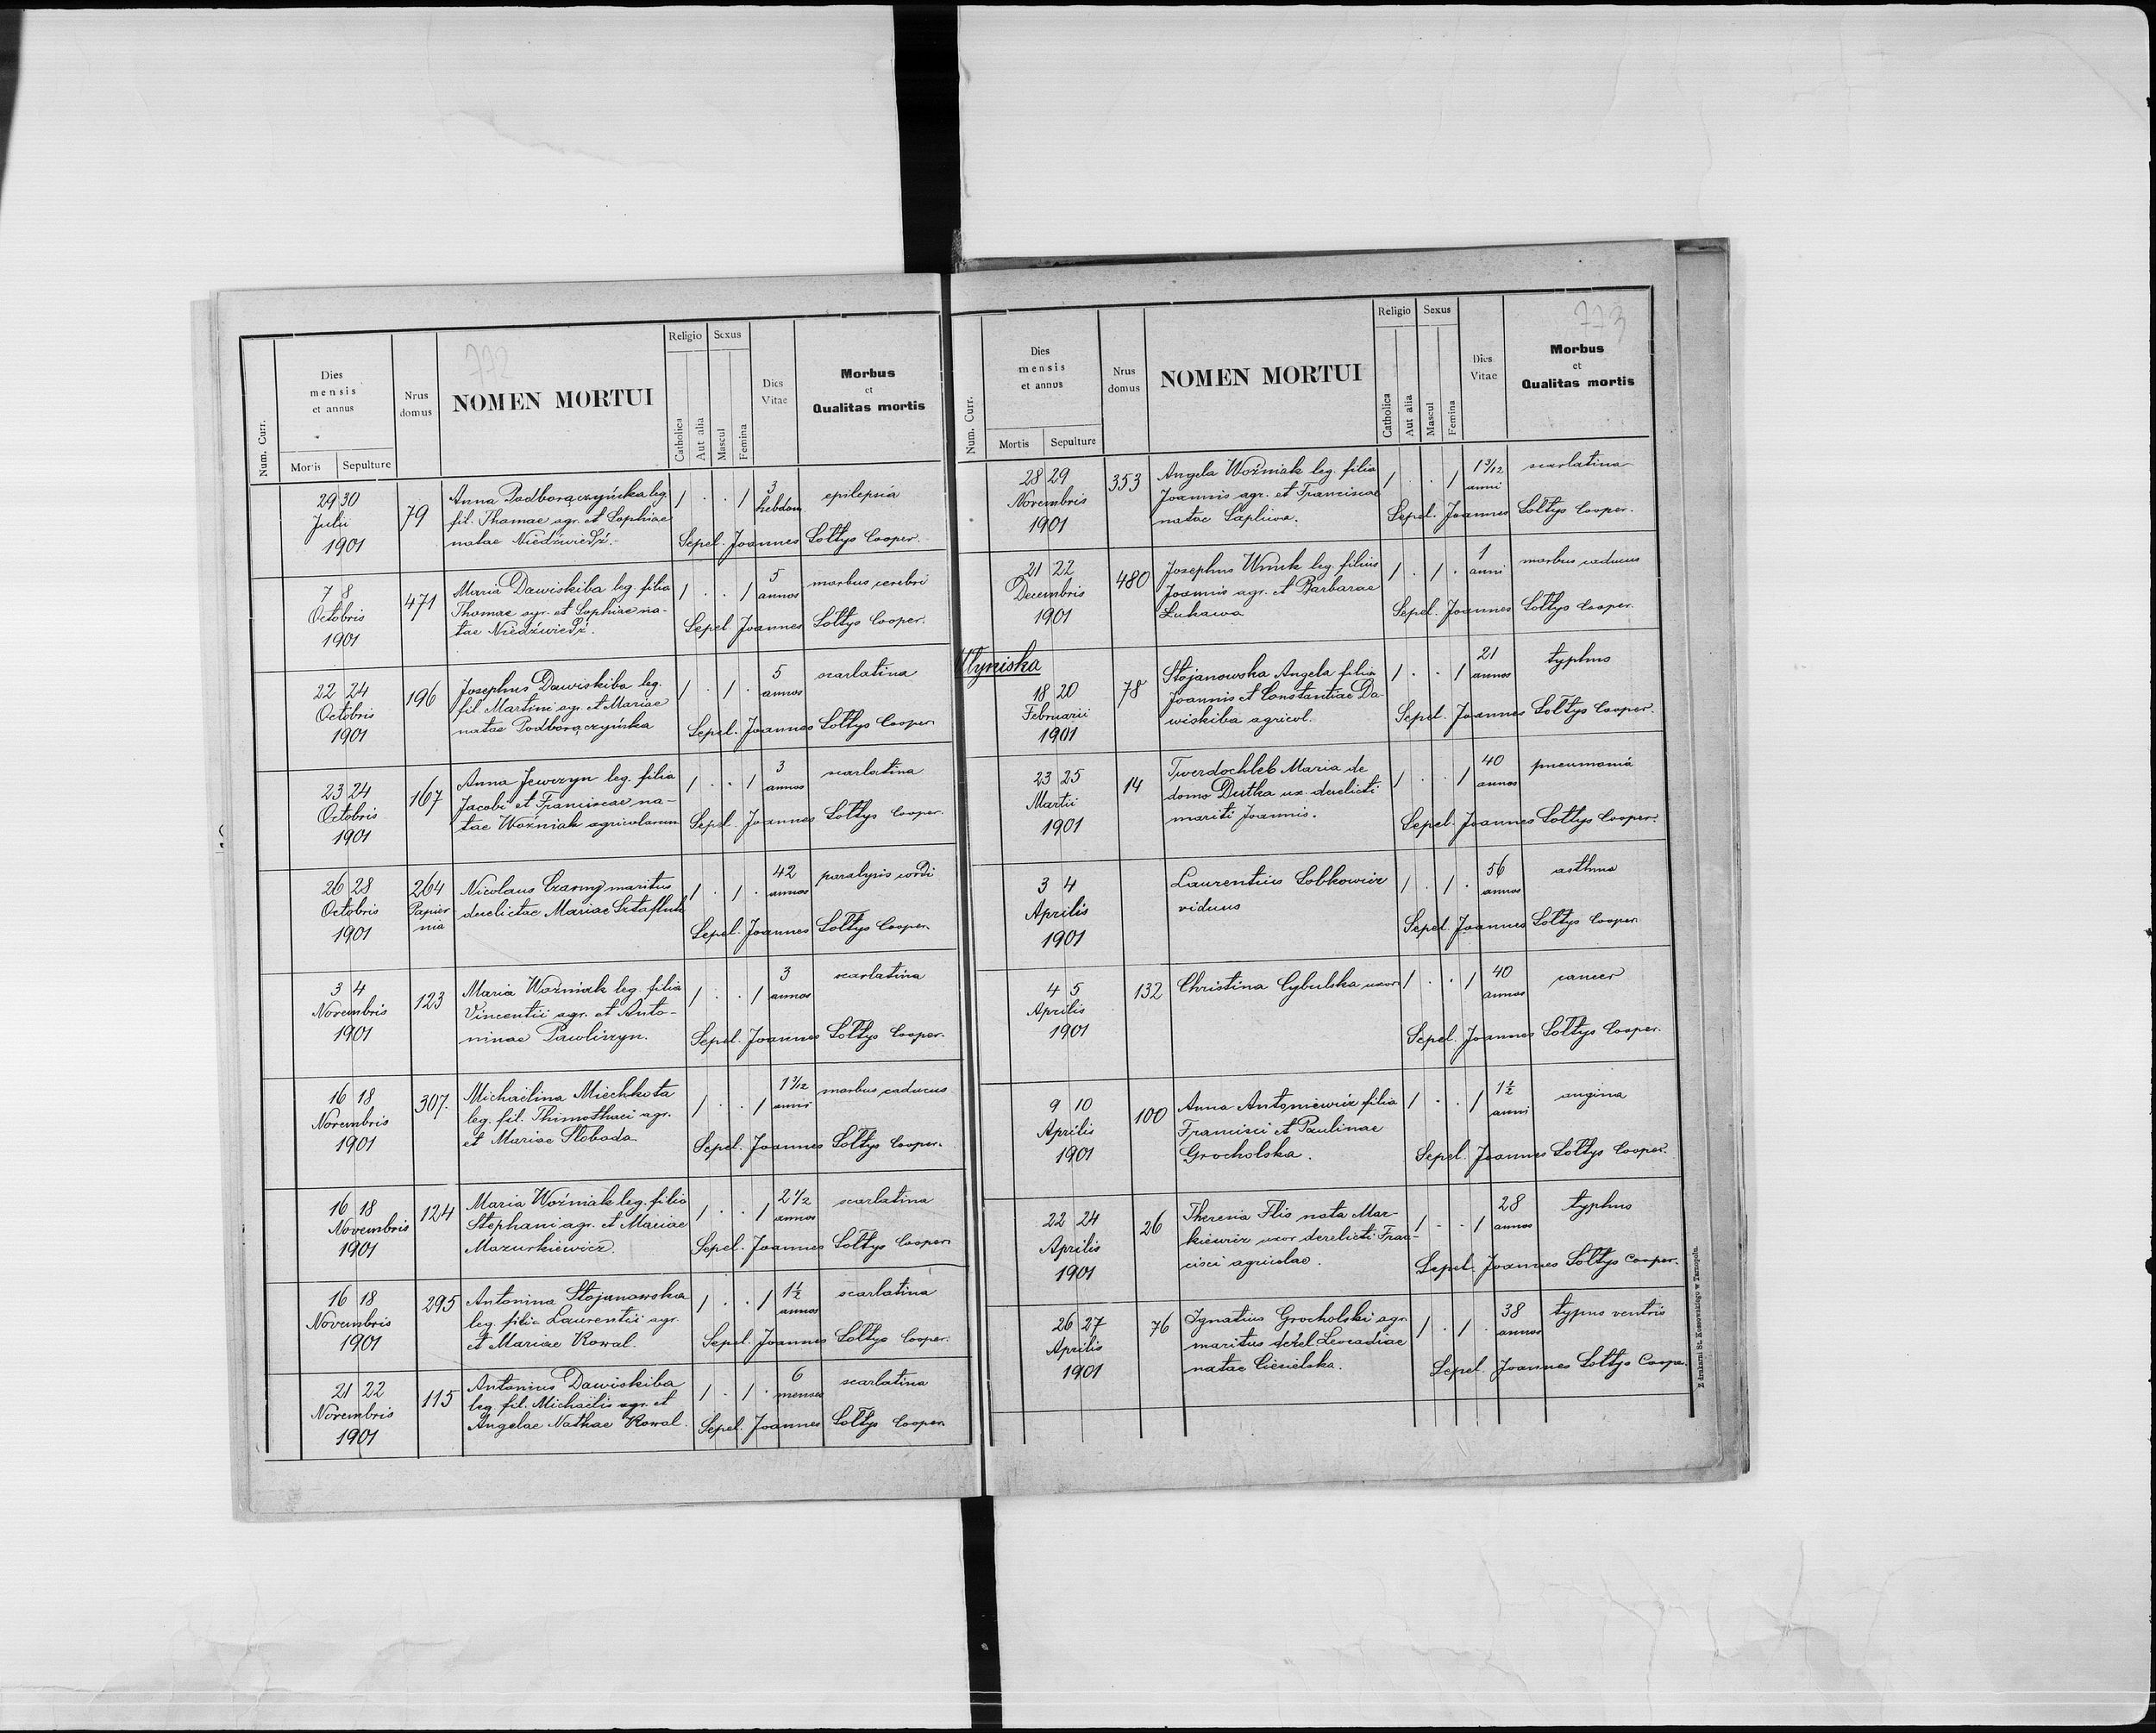 772
Num. Curr.
Dies mensis et annus
Mortis Sepulture
Nrus domus
NOMEN MORTUI
Religio
Catholica
Aut alia
Sexus
Mascul
Femina
Dies Vitae
Morbus et Qualitas mortis
29 30 79 Anna Podborączyńska leg. 1 . . 1 3 epilepsia
Julii fil. Thomae agr. et Sophiae hebdom.
1901 natae Niedźwiedź. Sepel. Joannes Sołtys Cooper.
7 8 471 Maria Dawiskiba leg. filia 1 . . 1 5 morbus cerebri
Octobris Thomae agr. et Sophiae na- annos
1901 tae Niedźwiedź. Sepel. Joannes Sołtys Cooper.
22 24 196 Josephus Dawiskiba leg. 1 . 1 . 5 scarlatina
Octobris fil. Martini agr. et Mariae annos
1901 natae Podborączyńska Sepel. Joannes Sołtys Cooper
23 24 167 Anna Jewczyn leg. filia 1 . . 1 3 scarlatina
Octobris Jacobi et Franciscae na- annos
1901 tae Woźniak agricolarum Sepel. Joannes Sołtys Cooper.
26 28 264 Nicolaus Czarny maritus 1 . 1 . 42 paralysis cordi
Octobris Papier derelictae Mariae annos
1901 nia Sepel. Joannes Sołtys Cooper.
3 4 123 Maria Woźniak leg. filia 1 . . 1 3 scarlatina
Novembris Vincentii agr. et Anto- annos
1901 ninae Pawliczyn. Sepel. Joannes Sołtys Cooper.
16 18 307. Michaëlina Miechkota 1 . . 1 1 3/12 morbus caducus
Novembris leg. fil. Thimothaei agr. anni
1901 et Mariae Słoboda Sepel. Joannes Sołtys Cooper.
16 18 124 Maria Woźniak leg. filia 1 . . 1 2 1/2 scarlatina
Novembris Stephani agr. et Mariae annos
1901 Mazurkiewicz. Sepel. Joannes Sołtys Cooper.
16 18 295 Antonina Stojanowska 1 . . 1 1 1/2 scarlatina
Novembris leg. filia Laurentii agr. annos
1901 et Mariae Kowal. Sepel. Joannes Sołtys Cooper.
21 22 115 Antonius Dawiskiba 1 . 1 . 6 scarlatina
Novembris leg. fil. Michaëlis agr. et menses
1901 Angelae Nathae Kowal. Sepel. Joannes Sołtys Cooper.
773
Num. Curr.
Dies mensis et annus
Mortis Sepulture
Nrus domus
NOMEN MORTUI
Religio
Catholica
Aut alia
Sexus
Mascul
Femina
Dies Vitae
Morbus et Qualitas mortis
28 29 353 Angela Woźniak leg. filia 1 . . 1 1 3/12 scarlatina
Novembris Joannis agr. et Franciscae anni
1901 natae Sepel. Joannes Sołtys Cooper.
21 22 480 Josephus Wnuk leg. filius 1 . 1 . 1 morbus caducus
Decembris Joannis agr. et Barbarae anni
1901 Łukawa Sepel. Joannes Sołtys Cooper.
Młyniska
18 20 78 Stojanowska Angela filia 1 . . 1 21 typhus
Februarii Joannis et Constantiae Da- annos
1901 wiskiba agricol. Sepel. Joannes Sołtys Cooper.
23 25 14 Twerdochleb Maria de 1 . . 1 40 pneumonia
Martii domo Dutka ux. derelicti annos
1901 mariti Joannis. Sepel. Joannes Sołtys Cooper.
3 4 Laurentius Sobkowicz 1 . 1 . 56 asthma
Aprilis viduus annos
1901 Sepel. Joannes Sołtys Cooper.
4 5 132 Christina Cybulska uxor 1 . . 1 40 cancer
Aprilis annos
1901 Sepel. Joannes Sołtys Cooper.
9 10 100 Anna Antoniewicz filia 1 . . 1 1 1/2 angina
Aprilis Francisci et Paulinae anni
1901 Grocholska. Sepel. Joannes Sołtys Cooper.
22 24 26 Theresia Flis nata Mar- 1 . . 1 28 typhus
Aprilis kiewicz uxor derelicti Fran- annos
1901 cisci agricolae. Sepel. Joannes Sołtys Cooper.
26 27 76 Ignatius Grocholski agr. 1 . 1 . 38 typus ventris
Aprilis maritus derel. Leocadiae annos
1901 natae Ciesielska. Sepel. Joannes Sołtys Cooper.
Z drukarni St. Kossowskiego w Tarnopolu.